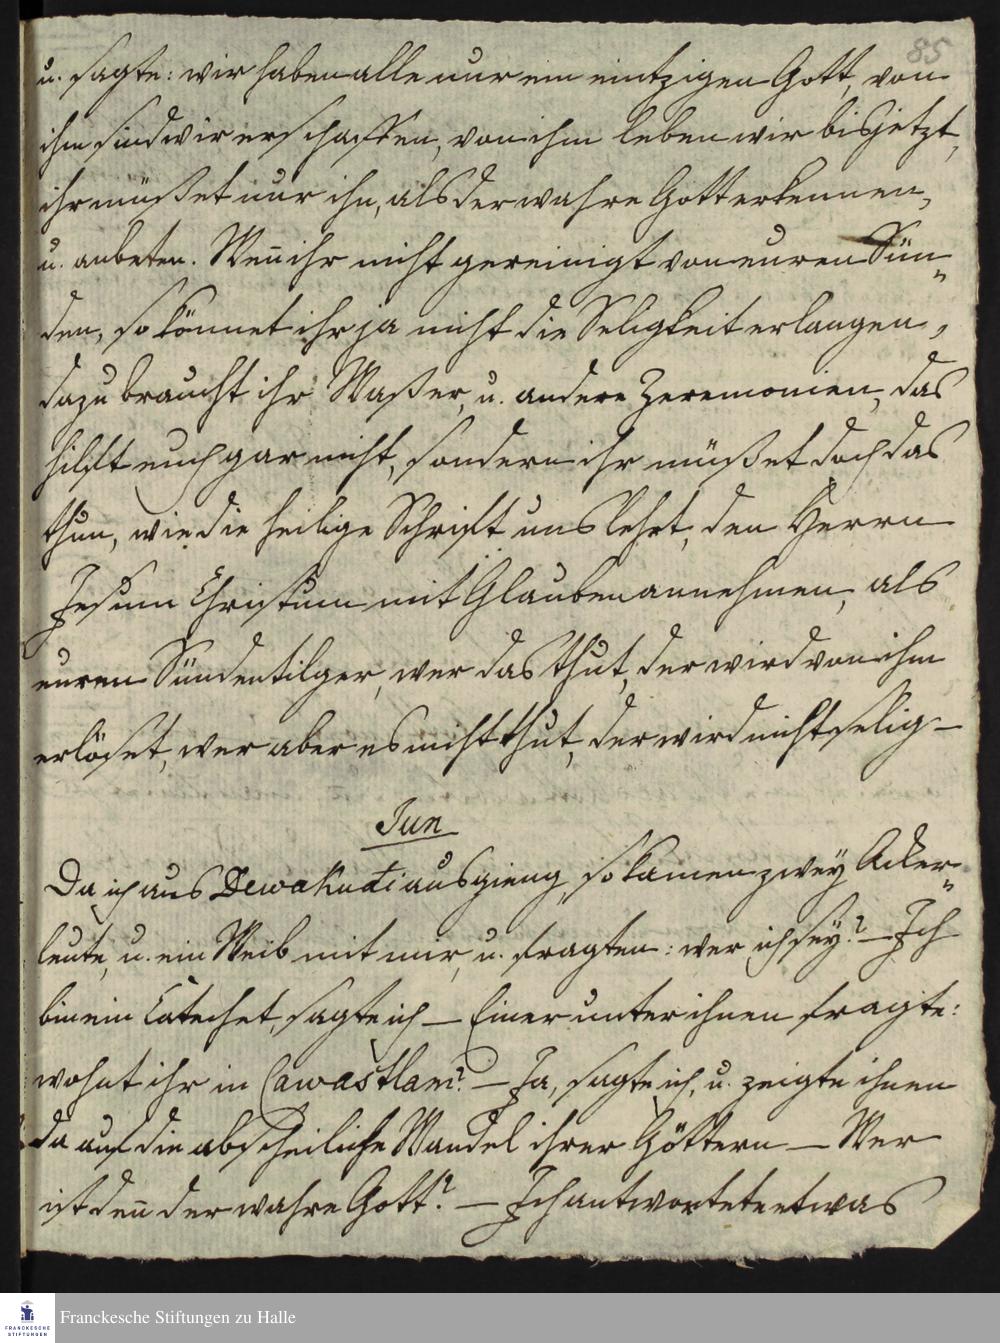 85
u. sagte: wir haben alle nur ein eintzigen Gott, von
ihm sind wir erschaffen, von ihm leben wir bis jetzt,
ihr müßet nur ihn, als der wahre Gott erkennen,
u. anbeten. Wen̄ ihr nicht gereinigt von euren Sün„
den, so könnet ihr ja nicht die Seligkeit erlangen,
dazu braucht ihr Waßer, u. andere Zeremonien, das
hilft euch gar nicht, sondern ihr müßet doch das
thun, wie die heilige Schrift uns lehrt, den Herrn
Jesum Christum mit Glauben annehmen, als
euren Sündentilger, wer das thut, der wird von ihm
erlöset, wer aber es nicht thut, der wird nicht selig —
Jun
Da ich aus Dewakudi ausgieng, so kamen zwey Acker„
leute, u. ein Weib mit mir, u. fragten: wer ich sey? — Ich
bin ein Catechet, sagte ich — Einer unter ihnen fragte:
wohnt ihr in Cawastlam? — Ja, sagte ich, u. zeigte ihnen
da auf die abscheiliche Wandel ihrer Göttern — Wer
ist den̄ der wahre Gott? — Ich antwortete etwas
FRANCKESCHE
STIFTUNGEN
Franckesche Stiftungen zu Halle